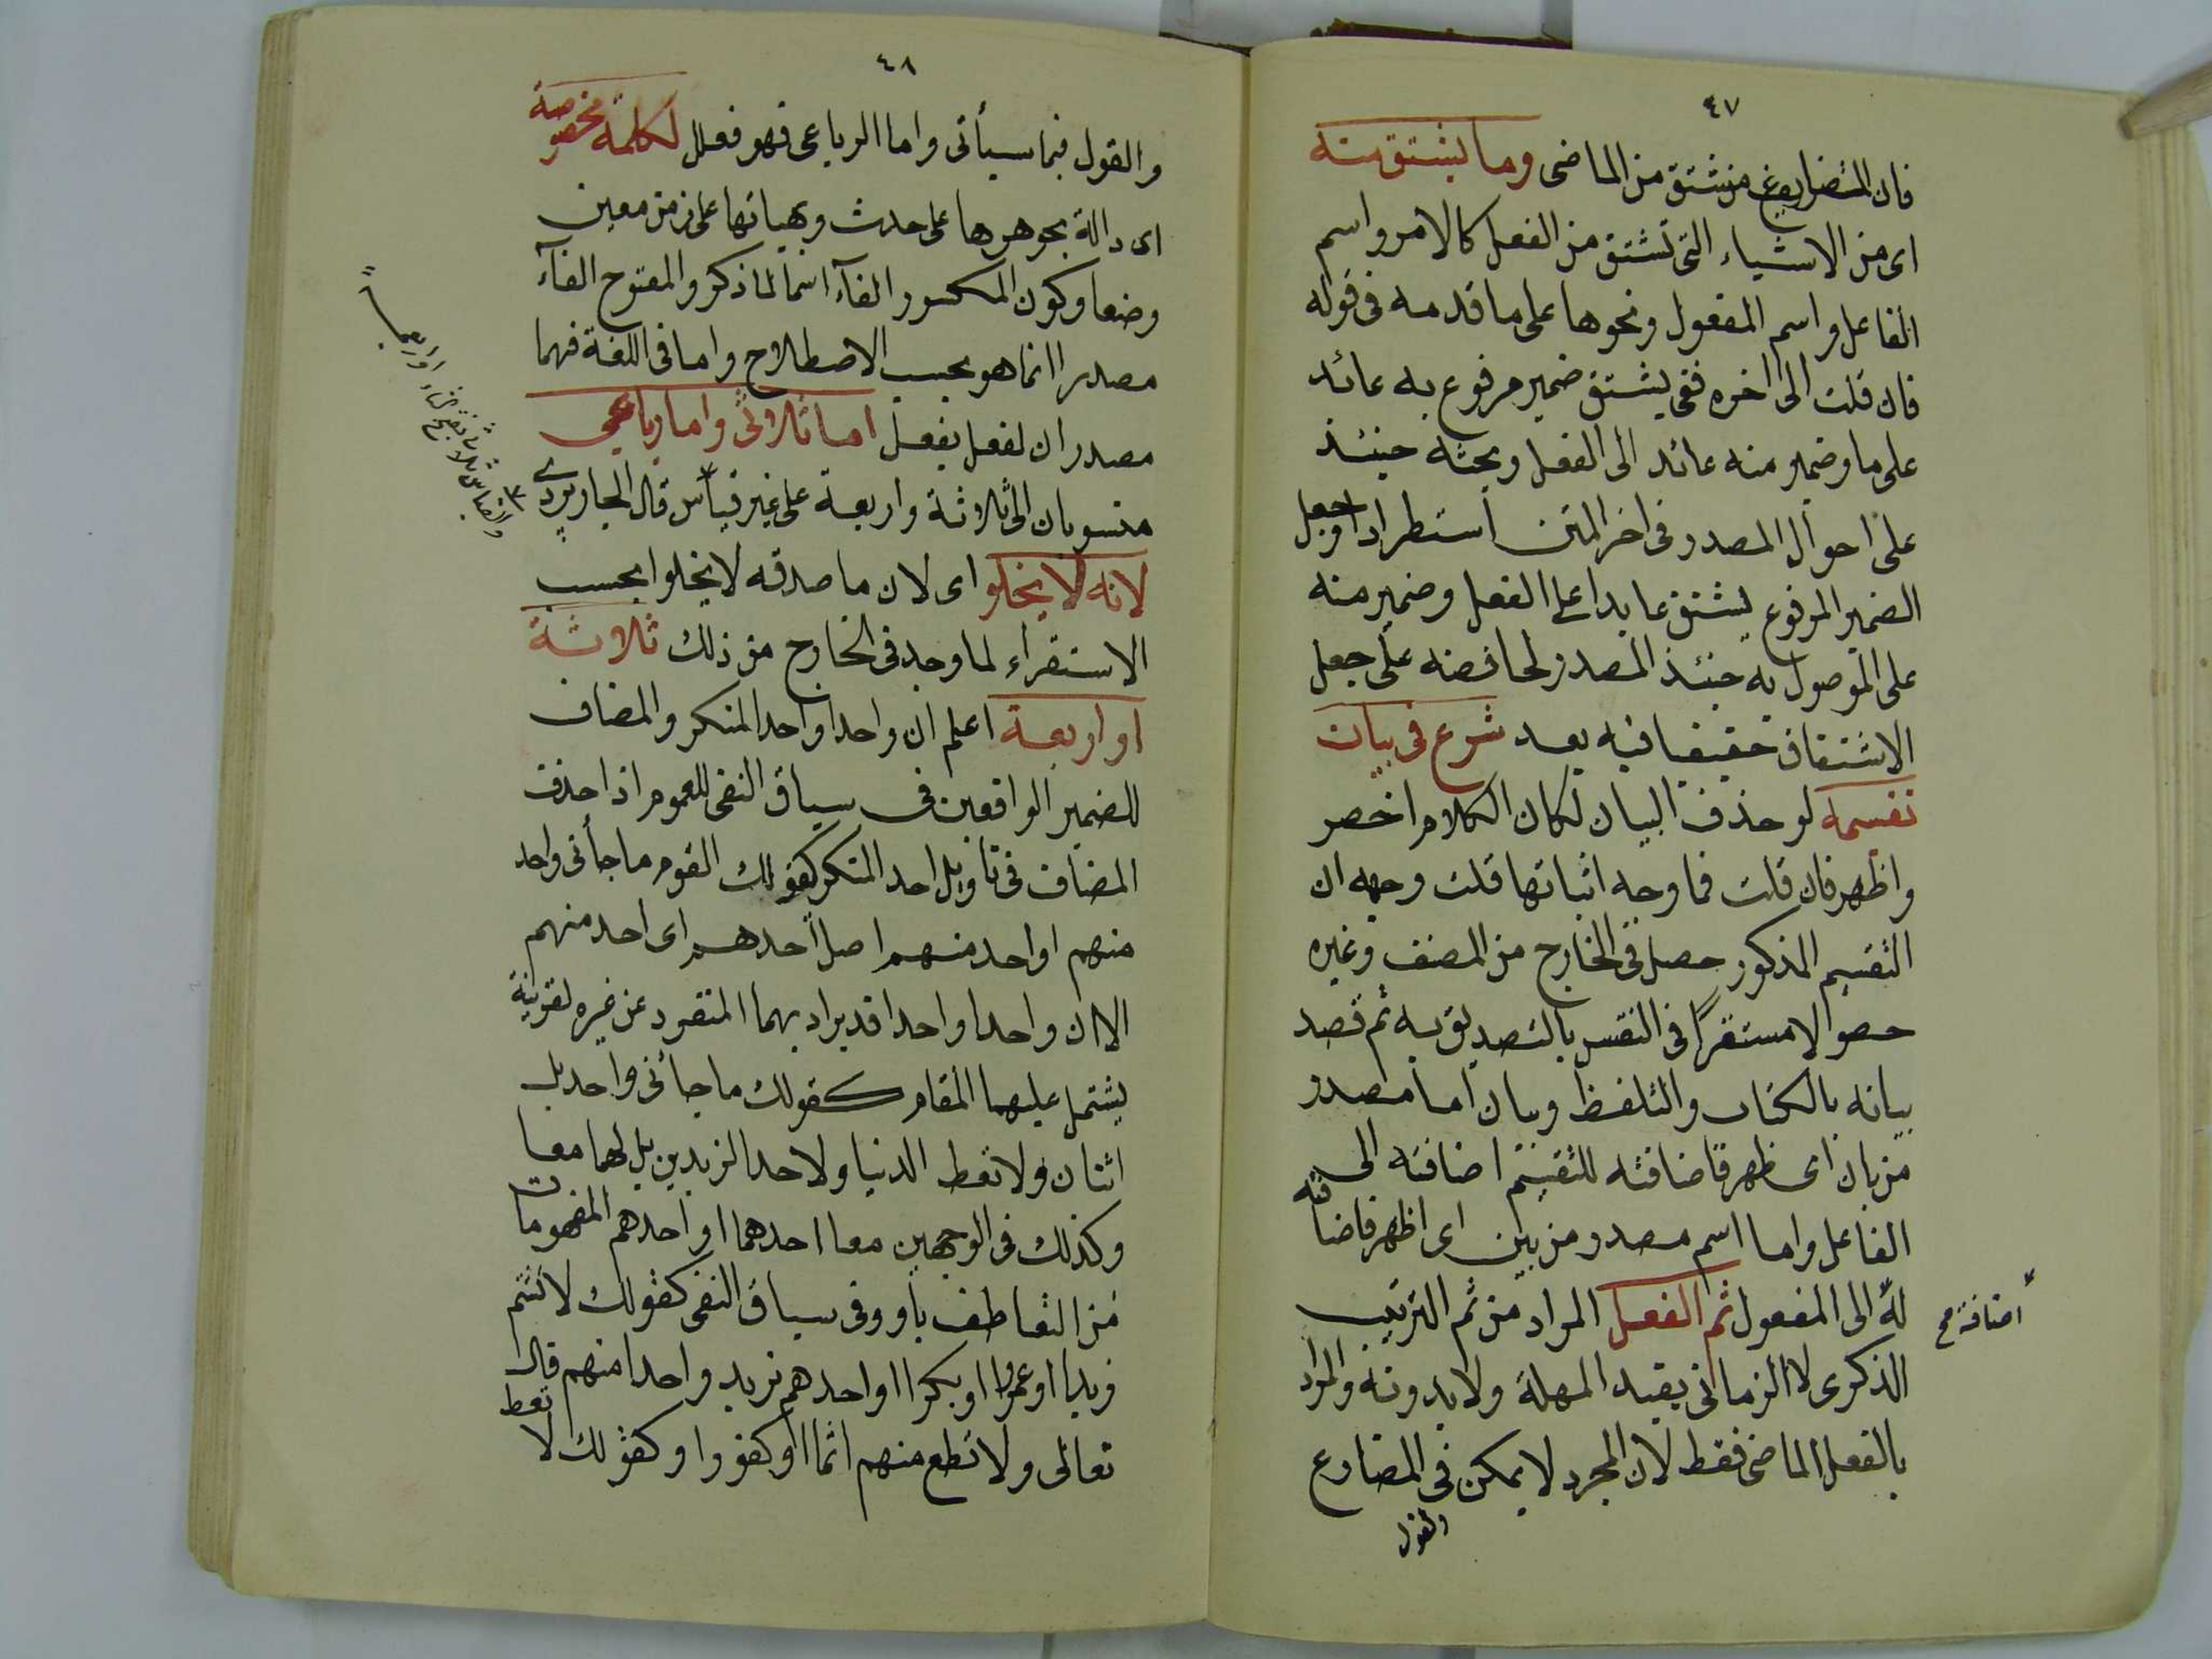 ٤٧
فان المضارع منشتق من الماضى وما يشتق منه
اى من الاشياء التى تشتق من الفعل كالامر واسم
الفاعل واسم المفعول ونحوها على ما قدمه فى قوله
فان قلت الى اخره ففى يشتق ضمير مرفوع به عائد
على ما وضمير منه عائد الى الفعل وبحثه حينئذ
على احوال المصدر فى اخر المتن استطراد او جعل
الضمير المرفوع يشتق عايدا على الفعل وضمير منه
على الموصول به حينئذ المصدر على جعل
الاشتقاق حقيقيا فيه بعد شرع فى بيان
تقسيمه لو حذف البيان لكان الكلام اخصر
واظهر فان قلت فما وجه اثباتها قلت وجهه ان
التقسيم المذكور حصل فى الخارج من المصنف وغيره
حصولا مستقرا فى النفس بالتصديق به ثم قصد
بيانه بالكتاب والتلفظ وبيان اما مصدر
من بان اى ظهر فاضافته للتقسيم اضافته الى
الفاعل واما اسم مصدر من بين اى اظهر فاضافته
له الى المفعول ثم الفعل المراد من ثم الترتيب
اضافة صح
الذكرى لا الزمانى بقيد المهلة ولا بدونه والمراد
بالفعل الماضى فقط لان المجرد لا يمكن فى المضارع
والقول
٤٨
والقول فيما سيأتى واما الرباعى فهو فعلل لكلمة مخصوصة
اى دالة بجوهرها على حدث وبهيأتها على زمن معين
وضعا وكون المكسور الفآء اسما لما ذكر والمفتوح الفآء
مصدرا انما هو بحسب الاصطلاح واما فى اللغة فهما
مصدران لفعل يفعل اما ثلاثى واما رباعى
منسوبان الى ثلاثة واربعة على غير قياس قال الجاربردى
لانه لا يخلو اى لان ما صدقه لا يخلوا بحسب
الاستقراء لما وجد فى الخارج من ذلك ثلاثة
او اربعة اعلم ان واحدا واحد المنكر والمضاف
للضمير الواقعين فى سياق النفى للعموم اذا حذفت
المضاف فى تاويل احد المنكر كقولك القوم ما جأنى واحد
منهم او احد منهم اصلا احدهم اى احد منهم
الا ان واحدا واحدا قد يراد بهما المنفرد عن غيره لقرينة
يشتمل عليهما المقام كقولك ما جأنى واحد بل
اثنان ولا تعط الدنيا ولا حد الزيدين بل لهما معا
وكذلك فى الوجهين معا احدهما او احدهم المفهومات
من التعاطف باو وفى سياق النفى كقولك لا تشتم
زيدا او عمروا او بكرا او احدهم تريد واحدا منهم قال
تعالى ولا تطع منهم اثما او كفورا وكقولك لا تعط